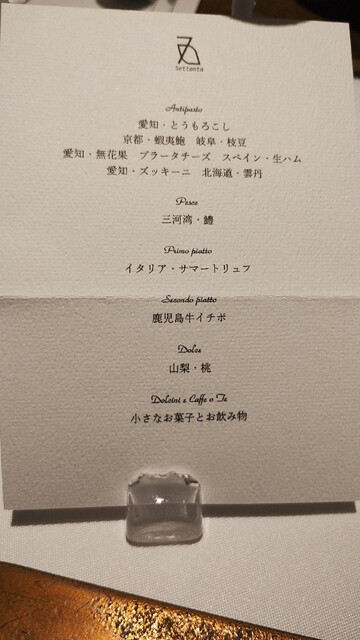 Settanta
Antipasto
愛知・とうもろこし
京都・蝦夷鮑　岐阜・枝豆
愛知・無花果　ブラータチーズ　スペイン・生ハム
愛知・ズッキーニ　北海道・雲丹
Pesce
三河湾・鱧
Primo piatto
イタリア・サマートリュフ
Secondo piatto
鹿児島牛イチボ
Dolce
山梨・桃
Dolcini e Caffe o Te
小さなお菓子とお飲み物